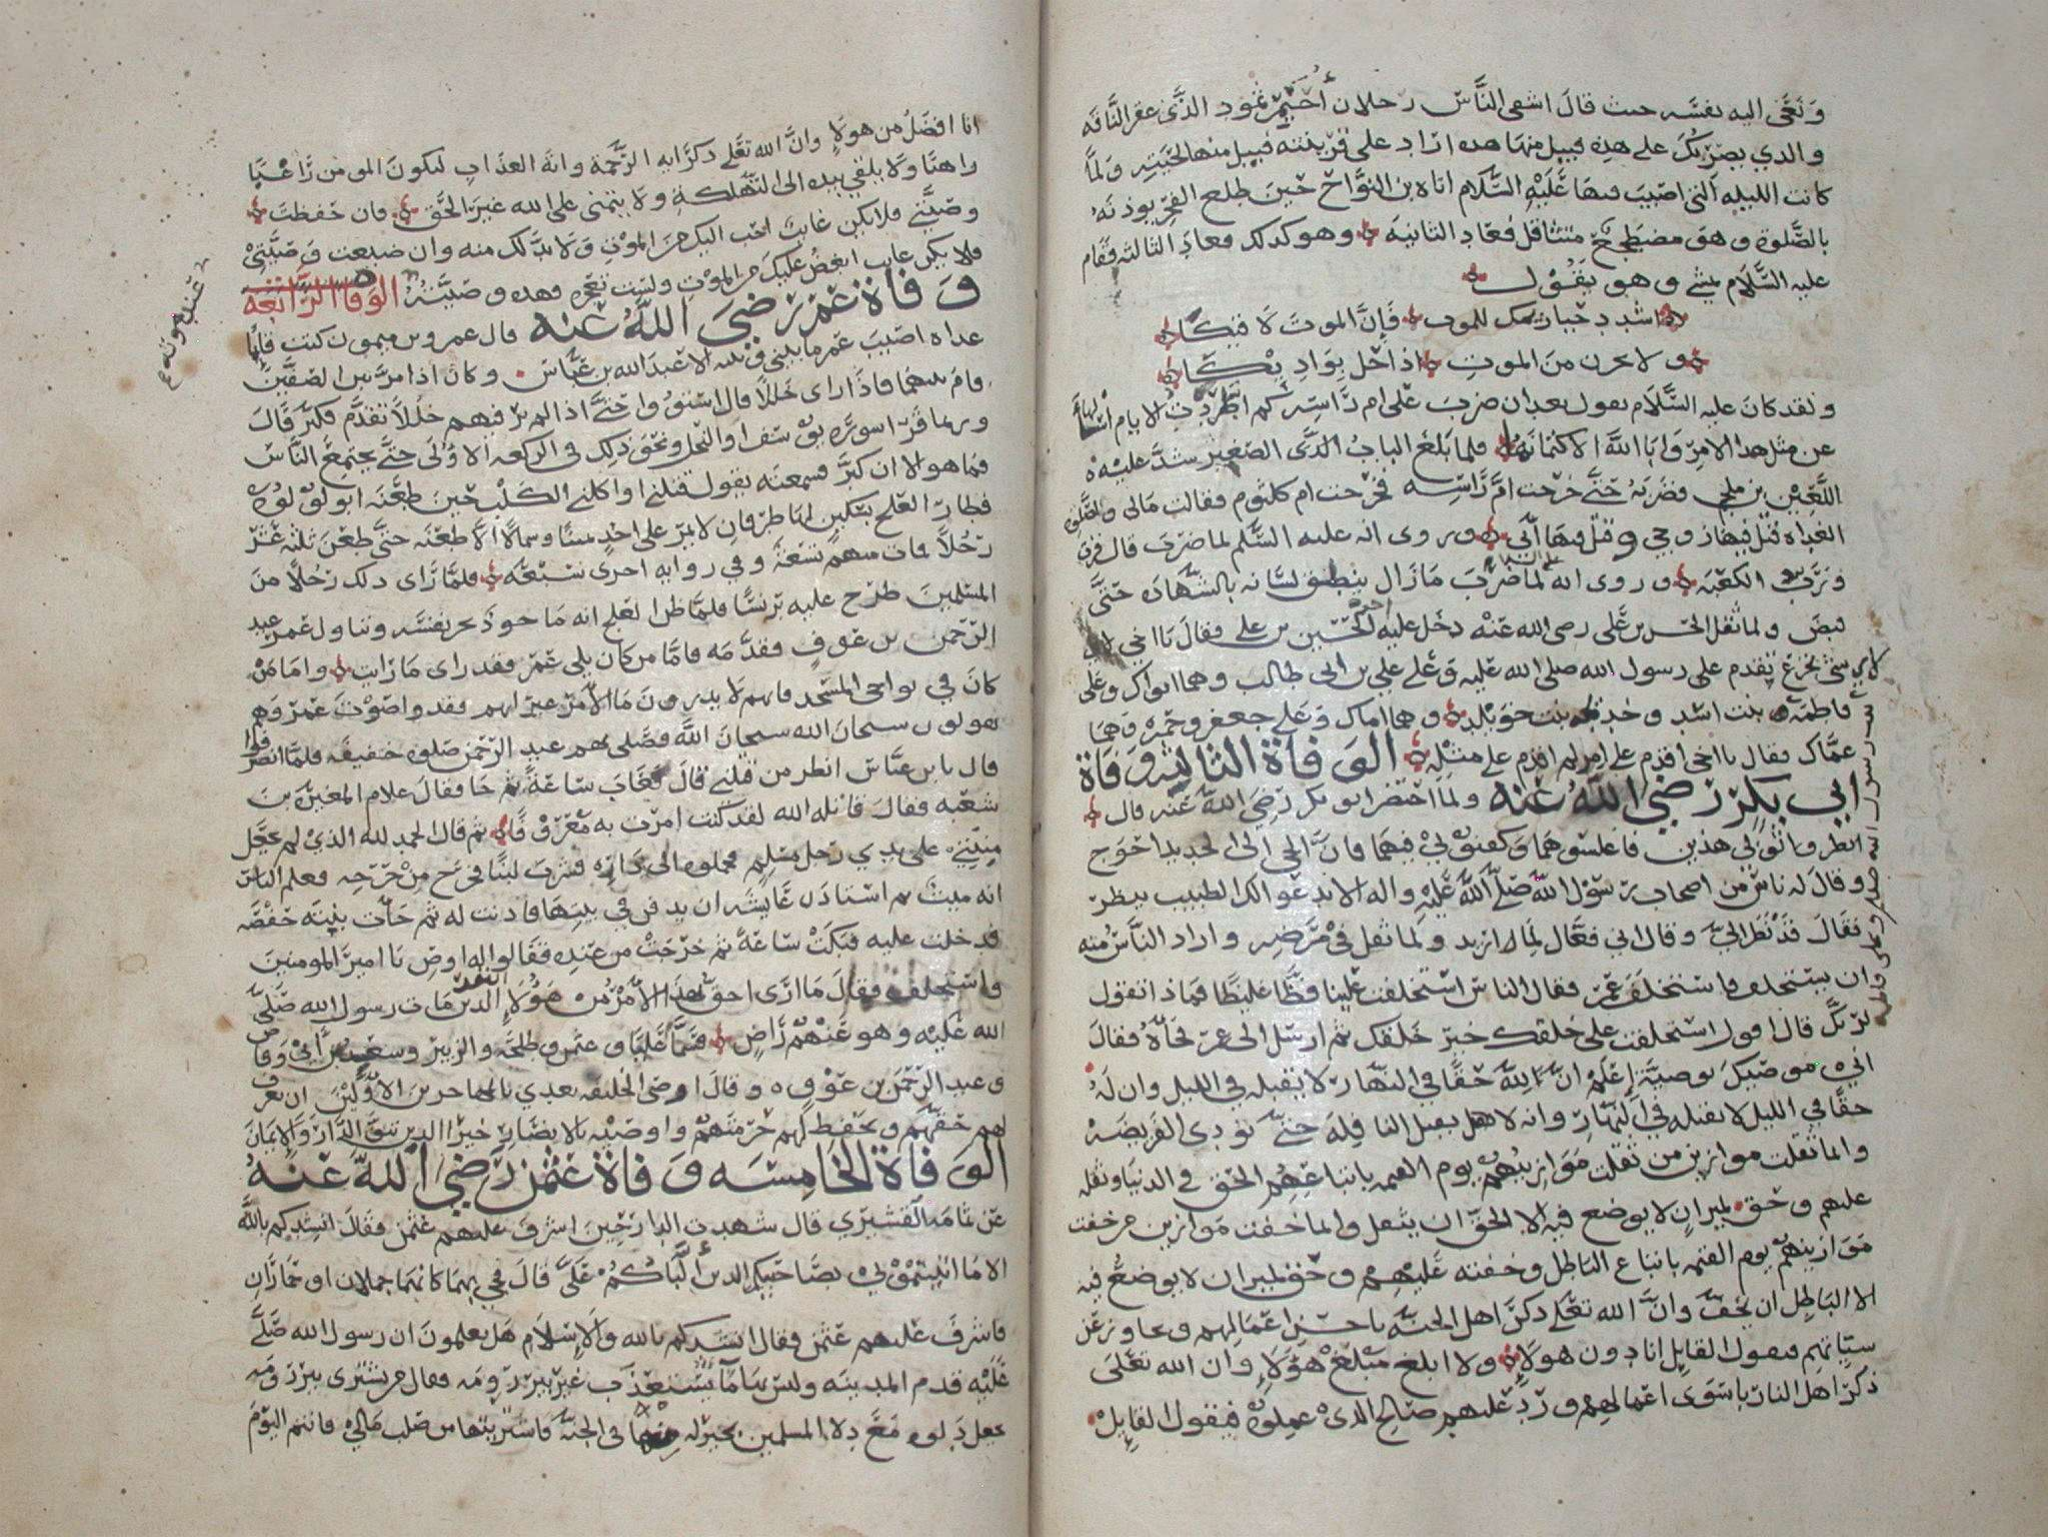 ونعى اليه نفسه حيث قال اشقى الناس رجلان أحيمر ثمود الذي عقر الناقه
والذي يضربك على هذه فيبل منها هذه
كانت الليله التى اصيب فيها عليه السلام اتاه بن النواح حين طلع الفجر يوذنه
بالصلوة وهو مضطجع متثاقل فعاد الثانية وهو كذلك فعاد الثالثه فقام
عليه السلام يمشي وهو يقول
اشدد حيازيمك للموت فإن الموت لا قيكا
ولا تجزع من الموت اذا حل بواديكا
ولقد كان عليه السلام يقول بعد ان ضرب على ام راسه كم اطردت الايام
عن مثل هذا الامر وابا الله الا كتمانه فلما بلغ الباب الذى الصغير شد عليه
اللعين بن ملجم فضربه حتى خرجت ام كلثوم فقالت مالى ولصلوة
الغداه قتل فيها زوجي وقتل فيها أبي وروى انه عليه السلم لما ضرب قال فزت
ورب الكعبه وروى انه لما ضرب مازال ينطق لسانه بالشهاده حتى
قبض ولما ثقل الحسن بن على رضى الله عنه دخل عليه الحسين بن على فقال يا اخي
لاى شى تجزع تقدم على رسول الله صلى الله عليه وعلى علي بن ابى طالب وهما ابواك وعلى
فاطمة بنت اسد وخديجه بنت خويلد وهما اماك وعلى جعفر وحمزه وهما
عماك فقال يا اخى اقدم على امر لم اقدم على مثله الوفاة الثالثه وفاة
ابي بكر رضي الله عنه ولما احتضر ابو بكر رضي الله عنه قال
انظروا ثوبى هذين فاغسلوهما وكفنوني فيهما فان الحي الى الجديد احوج
وقال له ناس من اصحاب رسول الله صلى الله عليه واله الا ندعو لك الطبيب ينظر
فقال قد نظر الى وقال انى فعال لما اريد ولما ثقل في مرضه واراد الناس منه
ان يستخلف فاستخلف عمر فقال الناس استخلفت علينا فظا غليظا فماذا تقول
لربك قال اقول استخلفت على خلقك خير خلقك ثم ارسل الى عمر فجاه فقال
اني موصيك بوصية إعلم ان لله حقا في النهار لا يقبله في الليل وان له
حقا في الليل لا يقبله في النهار وانه لا يقبل النافلة حتى تودى الفريضه
وانما ثقلت موازين من ثقلت موازينهم يوم القيمه باتباعهم الحق في الدنيا وثقله
عليهم وحق لميزان لا يوضع فيه الا الحق ان يثقل وانما خفت موازين من خفت
موازينهم يوم القيمه باتباع الباطل وخفته عليهم وحق لميزان لا يوضع فيه
الا الباطل ان يخف وان الله تعلى ذكر اهل الجنه باحسن اعمالهم وتجاوز عن
سيئاتهم فيقول القايل انا دون هولاء ولا ابلغ مبلغ هولاء وان الله تعلى
ذكر اهل النار باسوى اعمالهم ورد عليهم صالح الذى عملوه فيقول القايل
انا افضل من هولاء وان الله تعلى ذكر اية الرحمة واية العذاب ليكون المومن راغبا
راهبا ولا يلقي بيده الى التهلكة ولا يتمنى على الله غير الحق فان حفظت
وصيتي فلا يكن غايب احب اليك من الموت ولا بد لك منه وان ضيعت وصيتي
فلا يكن غايب ابغض عليك من الموت ولست تعجزه فهذه وصيته الوفاة الرابعة
وفاة عمر رضي الله عنه قال عمرو بن ميمون كنت قايما
غداه اصيب عمر ما بيني وبينه الا عبد الله بن عباس وكان اذا مر بين الصفين
قام بينهما فاذا راى خللا قال استووا حتى اذا لم ير فيهم خللا تقدم فكبر قال
وربما قرا سورة يوسف او النحل ونحو ذلك فى الركعه الاولى حتى يجتمع الناس
فما هو الا ان كبر فسمعته يقول قتلنى او اكلني الكلب حين طعنه ابو لولوه
فطار العلج بسكين لها طرفان لا يمر على احد يمينا وشمالا الا طعنه حتى طعن ثلثه عشر
رجلا فمات منهم تسعة وفي روايه اخرى سبعة فلما راى ذلك رجلا من
المسلمين طرح عليه برنسا فلما ظن العلج انه ماخوذ نحر نفسه وتناول عمر عبد
الرحمن بن عوف فقدمه فاما من كان يلى عمر فقد راى ما رايت واما من
كان في نواحى المسجد فانهم لا يدرون ما الامر غير انهم فقدوا صوت عمر وهم
يقولون سبحان الله سبحان الله فصلى بهم عبد الرحمن صلوه خفيفه فلما انصرفوا
قال يا بن عباس انظر من قتلني قال فغاب ساعة ثم جا فقال غلام المغيره بن
شعبه فقال قاتله الله لقد كنت امرت به معروفا ثم قال الحمد لله الذي لم يجعل
منيتي على يدي رجل مسلم فحملوه الى داره فشرب لبنا فخرج من جرحه فعلم الناس
انه ميت ثم استاذن عايشه ان يدفن في بيتها فاذنت له ثم جات بنته حفصه
فدخلت عليه فبكت ساعة ثم خرجت من عنده فقالوا له اوص يا امير المومنين
واستخلف فقال ما ارى احق بهذا الامر من هولاء النفر الذين مات رسول الله صلى
الله عليه وهو عنهم راض فسما عليا وعثمن وطلحة والزبير وسعد بن أبي وقاص
وعبد الرحمن بن عوف وقال اوصى الخليفه بعدي بالمهاجرين الاولين ان يعرف
لهم حقهم ويحفظ لهم حرمتهم واوصيه بالانصار خيرا الذين تبوو الدار والايمان
الوفاة الخامسه وفاة عثمن رضي الله عنه
عن ثمامه القشيرى قال شهدت الدار حين اشرف عليهم عثمن فقال انشدكم بالله
الا ما اتيتموني بصاحبيكم الذين ألباكم على قال فجي بهما كانهما جملان او حماران
فاشرف عليهم عثمن فقال انشدكم بالله والاسلام هل يعلمون ان رسول الله صلى
عليه قدم المدينه وليس بها ما يستعذب غير بير رومه فقال من يشترى بير رومه
يجعل دلوه مع دلاء المسلمين بخير له منها فى الجنه فاشتريتها من صلب مالي فانتم اليوم